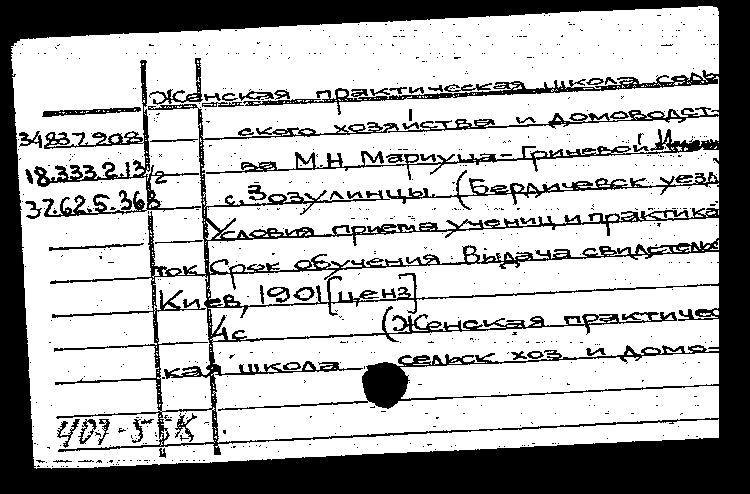 Женская практическая школа сель
34837.908 ского хозяйства и домоводст-
18.333.2.13/2 ва М.Н. Мариуца-Гриневой
37.62.5.368 с. Зозулинцы (Бердическ уезд
Условия приема учениц и практика
ток Срок обучения Выдача свидетельс
Киев, 1901 [ценз]
4с (Женская практичес
кая школа сельск хоз и домо-
409-55К